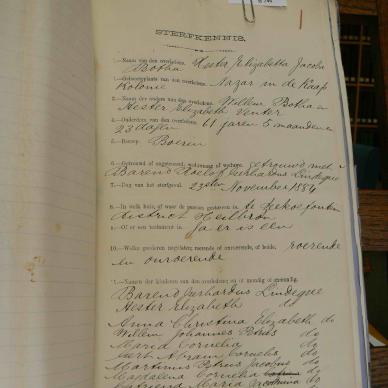 STERFKENNIS.
1.—Naam van den overledene. Hester Elizabetha Jacoba
Botha
1.—Geboorteplaats van den overledene. Nazar in de Kaap
Kolonie
3.—Namen der ouders van den overledene. Willem Botha en
Hester Elizabeth Venter
4.—Ouderdom van den overledene. 61 jaren 5 maanden en
23 dagen
5.—Beroep. Boeren
6.—Getrouwd of ongetrouwd, weduwnaar of weduwe. getrouwd met
Barend Roelof Gerhardus Lindeque
7.—Dag van het sterfgeval. 23sten November 1884
8.—In welk huis, of waar de persoon gestorven is. te Seekoe fontein
district Heilbron
9.—Of er een testament is. Ja er is een
10.—Welke goederen nagelaten, roerende of onroerende, of beide. roerende
en onroerende
Namen der kinderen van den overledene en of mondig of onmondig.
Barend Gerhardus Lindeque
Hester Elizabeth do
Anna Christina Elizabeth do
Willem Johannes Petrus do
Maria Cornelia do
Gert Abram Cornelis do
Martinus Petrus Jacobus do
Magdalena Cornelia do
Maria